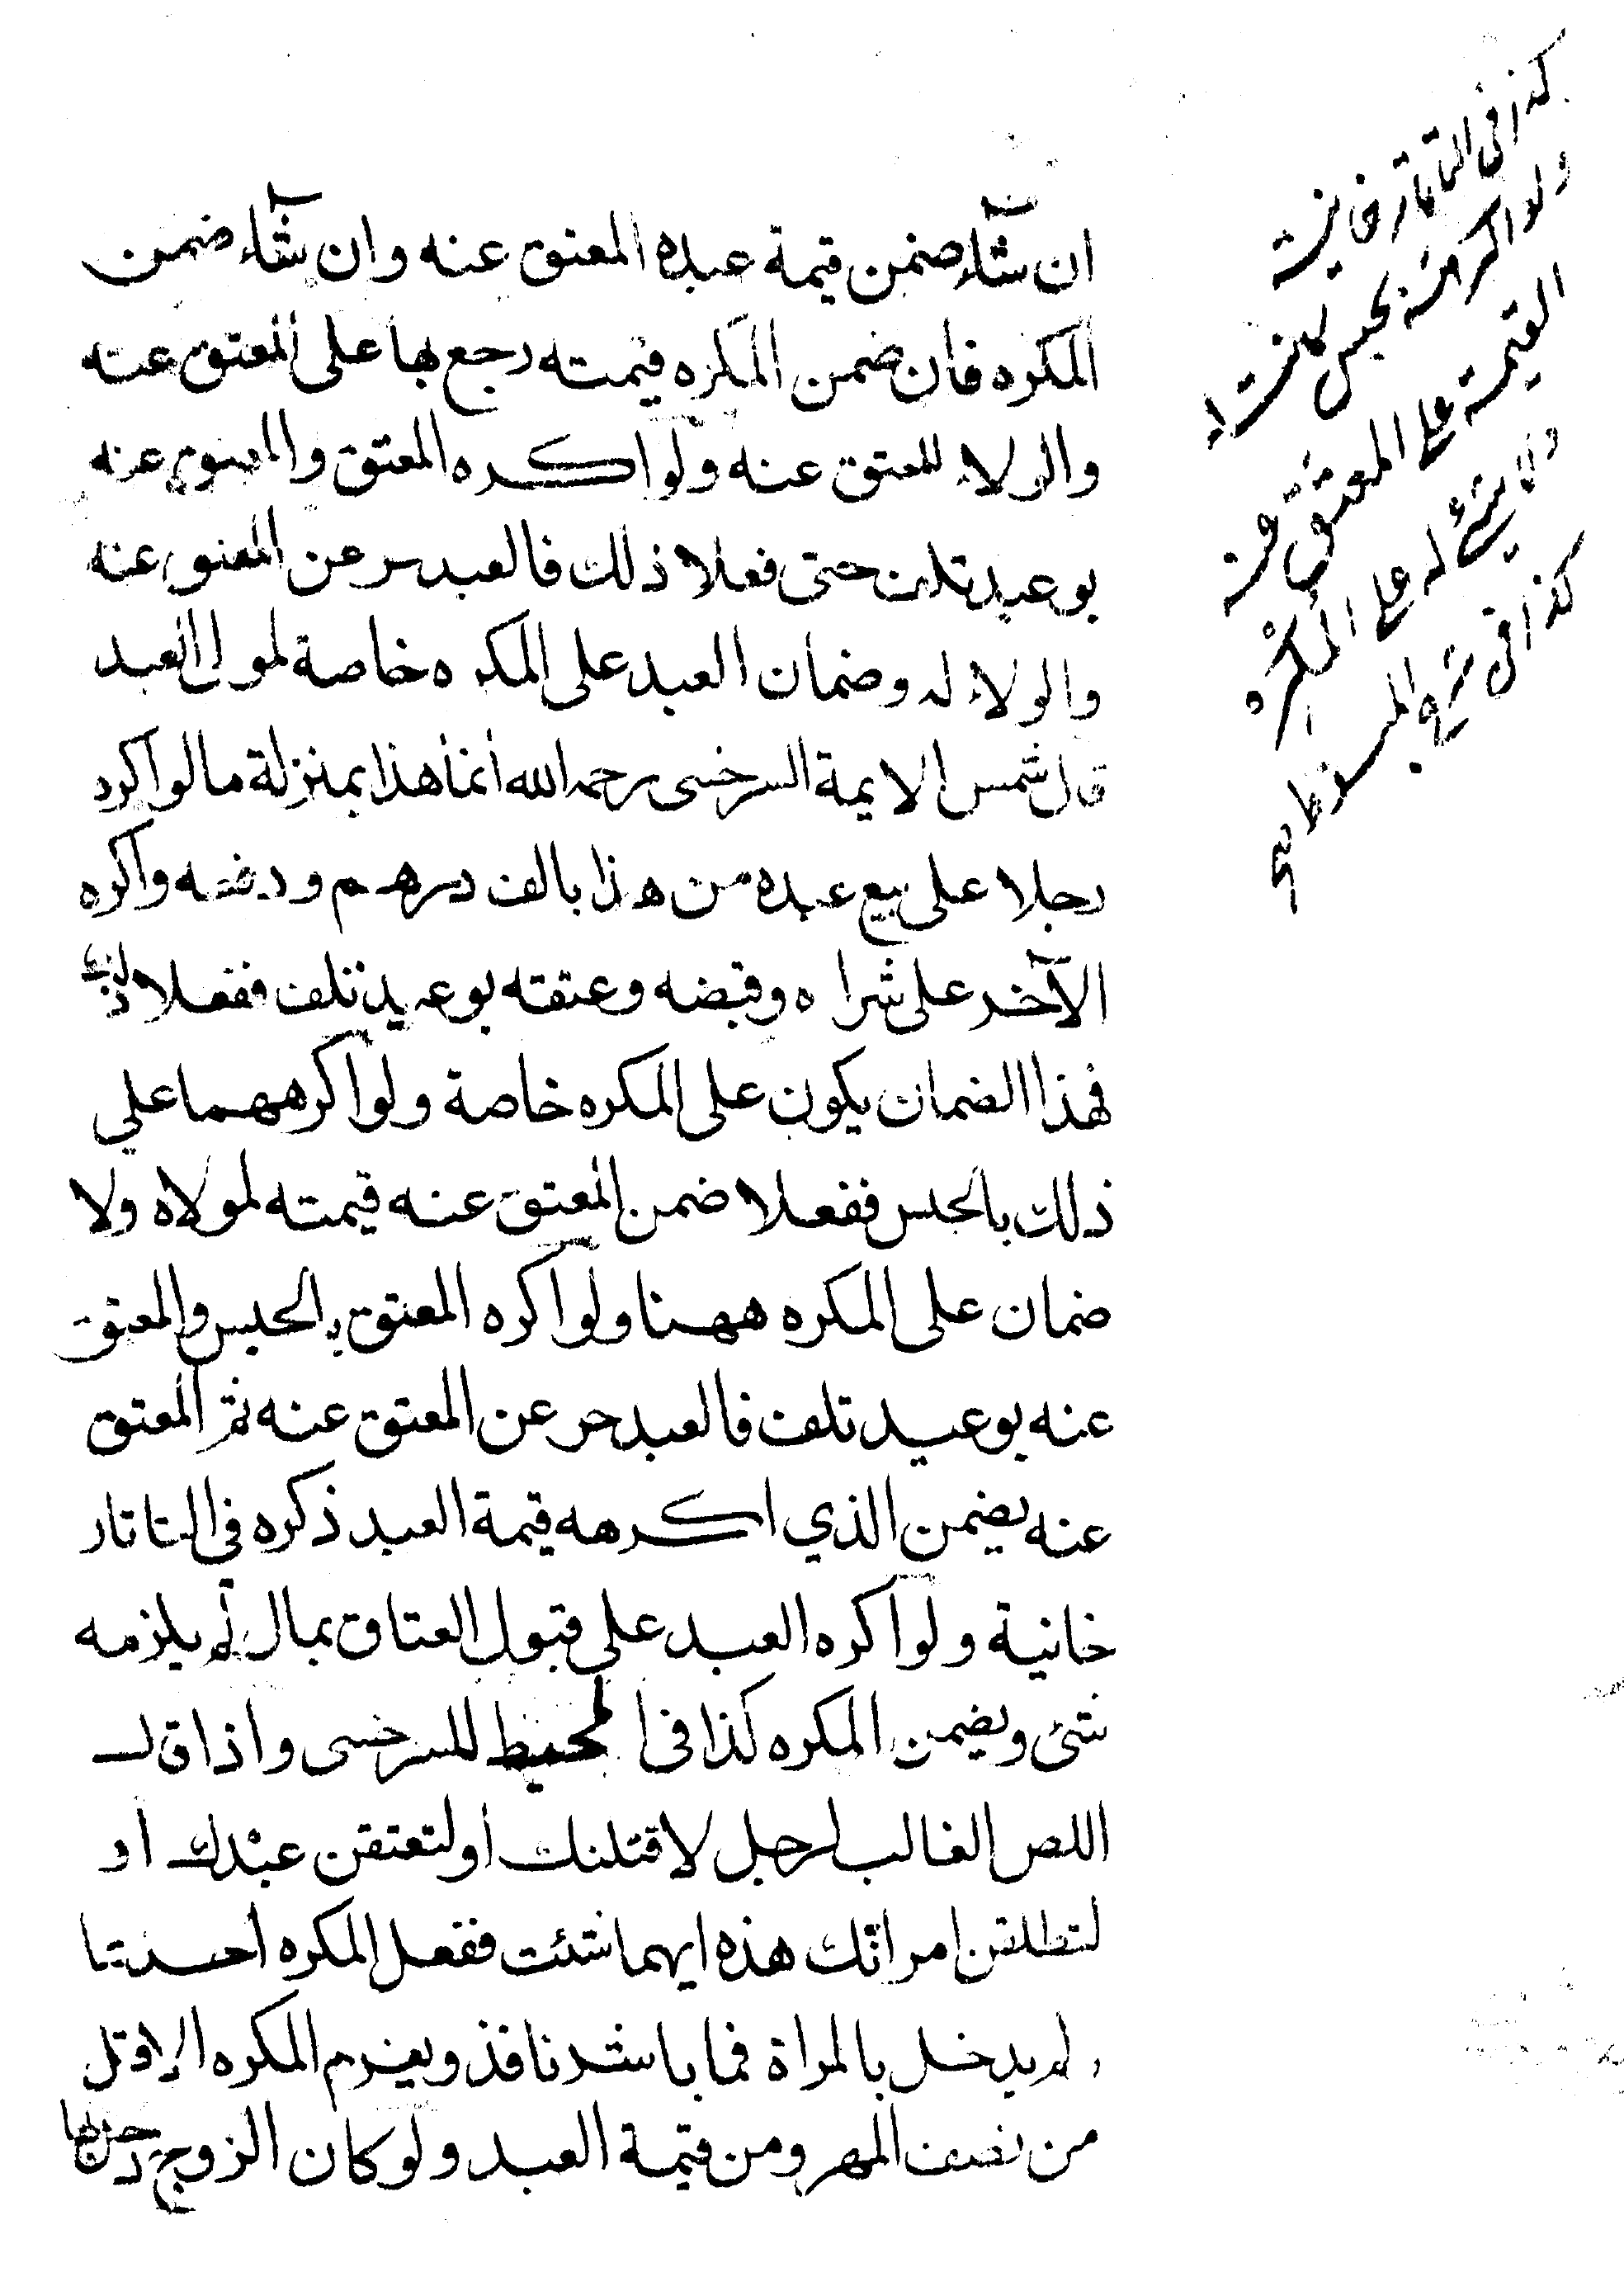 ان شآء ضمن قيمة عبده المعتق عنه وان شآء ضمن
المكره فان ضمن المكره قيمته رجع بها على المعتق عنه
والولاء للمعتق عنه ولو اكره المعتق والمعتق عنه
بوعيد تلف حتى فعلا ذلك فالعبد حر عن المعتق عنه
والولاء له وضمان العبد على المكره خاصة لمولى العبد
قال شمس الايمة السرخسى رحمه الله انما هذا بمنزلة ما لو اكره
رجلا على بيع عبده من هذا بالف درهم ودفعه واكره
الآخر على شراه وقبضه وعتقه بوعيد تلف ففعلا ذلك
فهذا الضمان يكون على المكره خاصة ولو اكرههما علي
ذلك بالحبس ففعلا ضمن المعتق عنه قيمته لمولاه ولا
ضمان على المكره ههنا ولو اكره المعتق بالحبس والمعتق
عنه بوعيد تلف فالعبد حر عن المعتق عنه ثم المعتق
عنه يضمن الذي اكرهه قيمة العبد ذكره في التاتار
خانية ولو اكره العبد على قبول العتاق بمال لم يلزمه
شئ ويضمن المكره كذا فى المحيط للسرخسى واذا قال
اللص الغالب لرجل لاقتلنك او لتعتقن عبدك او
لتطلقن امراتك هذه ايهما شئت ففعل المكره احدتا
ولم يدخل بالمراة فما باشر نافذ ويغرم المكره الاقل
من نصف المهر ومن قيمة العبد ولو كان الزوج دخل بها
كذا فى التاتارخانية
ولو اكرهه بحبس كانت
القيمة على المعتق عنه
ولا شئ له على المكره
كذا فى شرح المبسوط